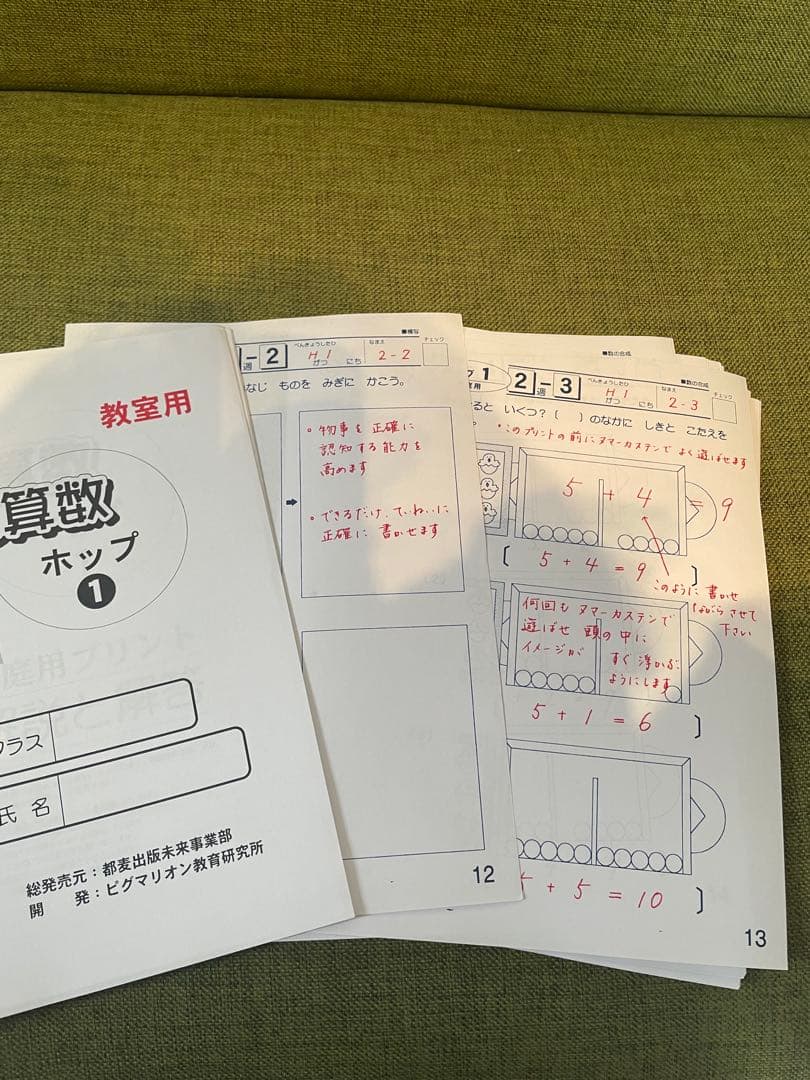 教室用
算数
ホップ
1
クラス
氏名
総発売元：都麦出版未来事業部
開　　発：ピグマリオン教育研究所
■模写
-2
週
べんきょうしたひ
H1
がつ にち
なまえ
2-2
チェック
なじ ものを みぎに かこう。
・物事を正確に
認知する能力を
高めます
・できるだけ、ていねいに
正確に書かせます
12
■数の合成
■数の合成
1
2-3
週
べんきょうしたひ
H1
がつ にち
なまえ
2-3
チェック
ると いくつ？（ ）のなかに しきと こたえを
・このプリントの前にヌマーカステンでよく遊ばせます
5 + 4 = 9
〔 5 + 4 = 9 〕
このように書かせ
ながらさせて
下さい
何回もヌマーカステンで
遊ばせ 頭の中に
イメージが すぐ浮かぶ
ようにします
5 + 1 = 6 〕
+ 5 = 10 〕
13